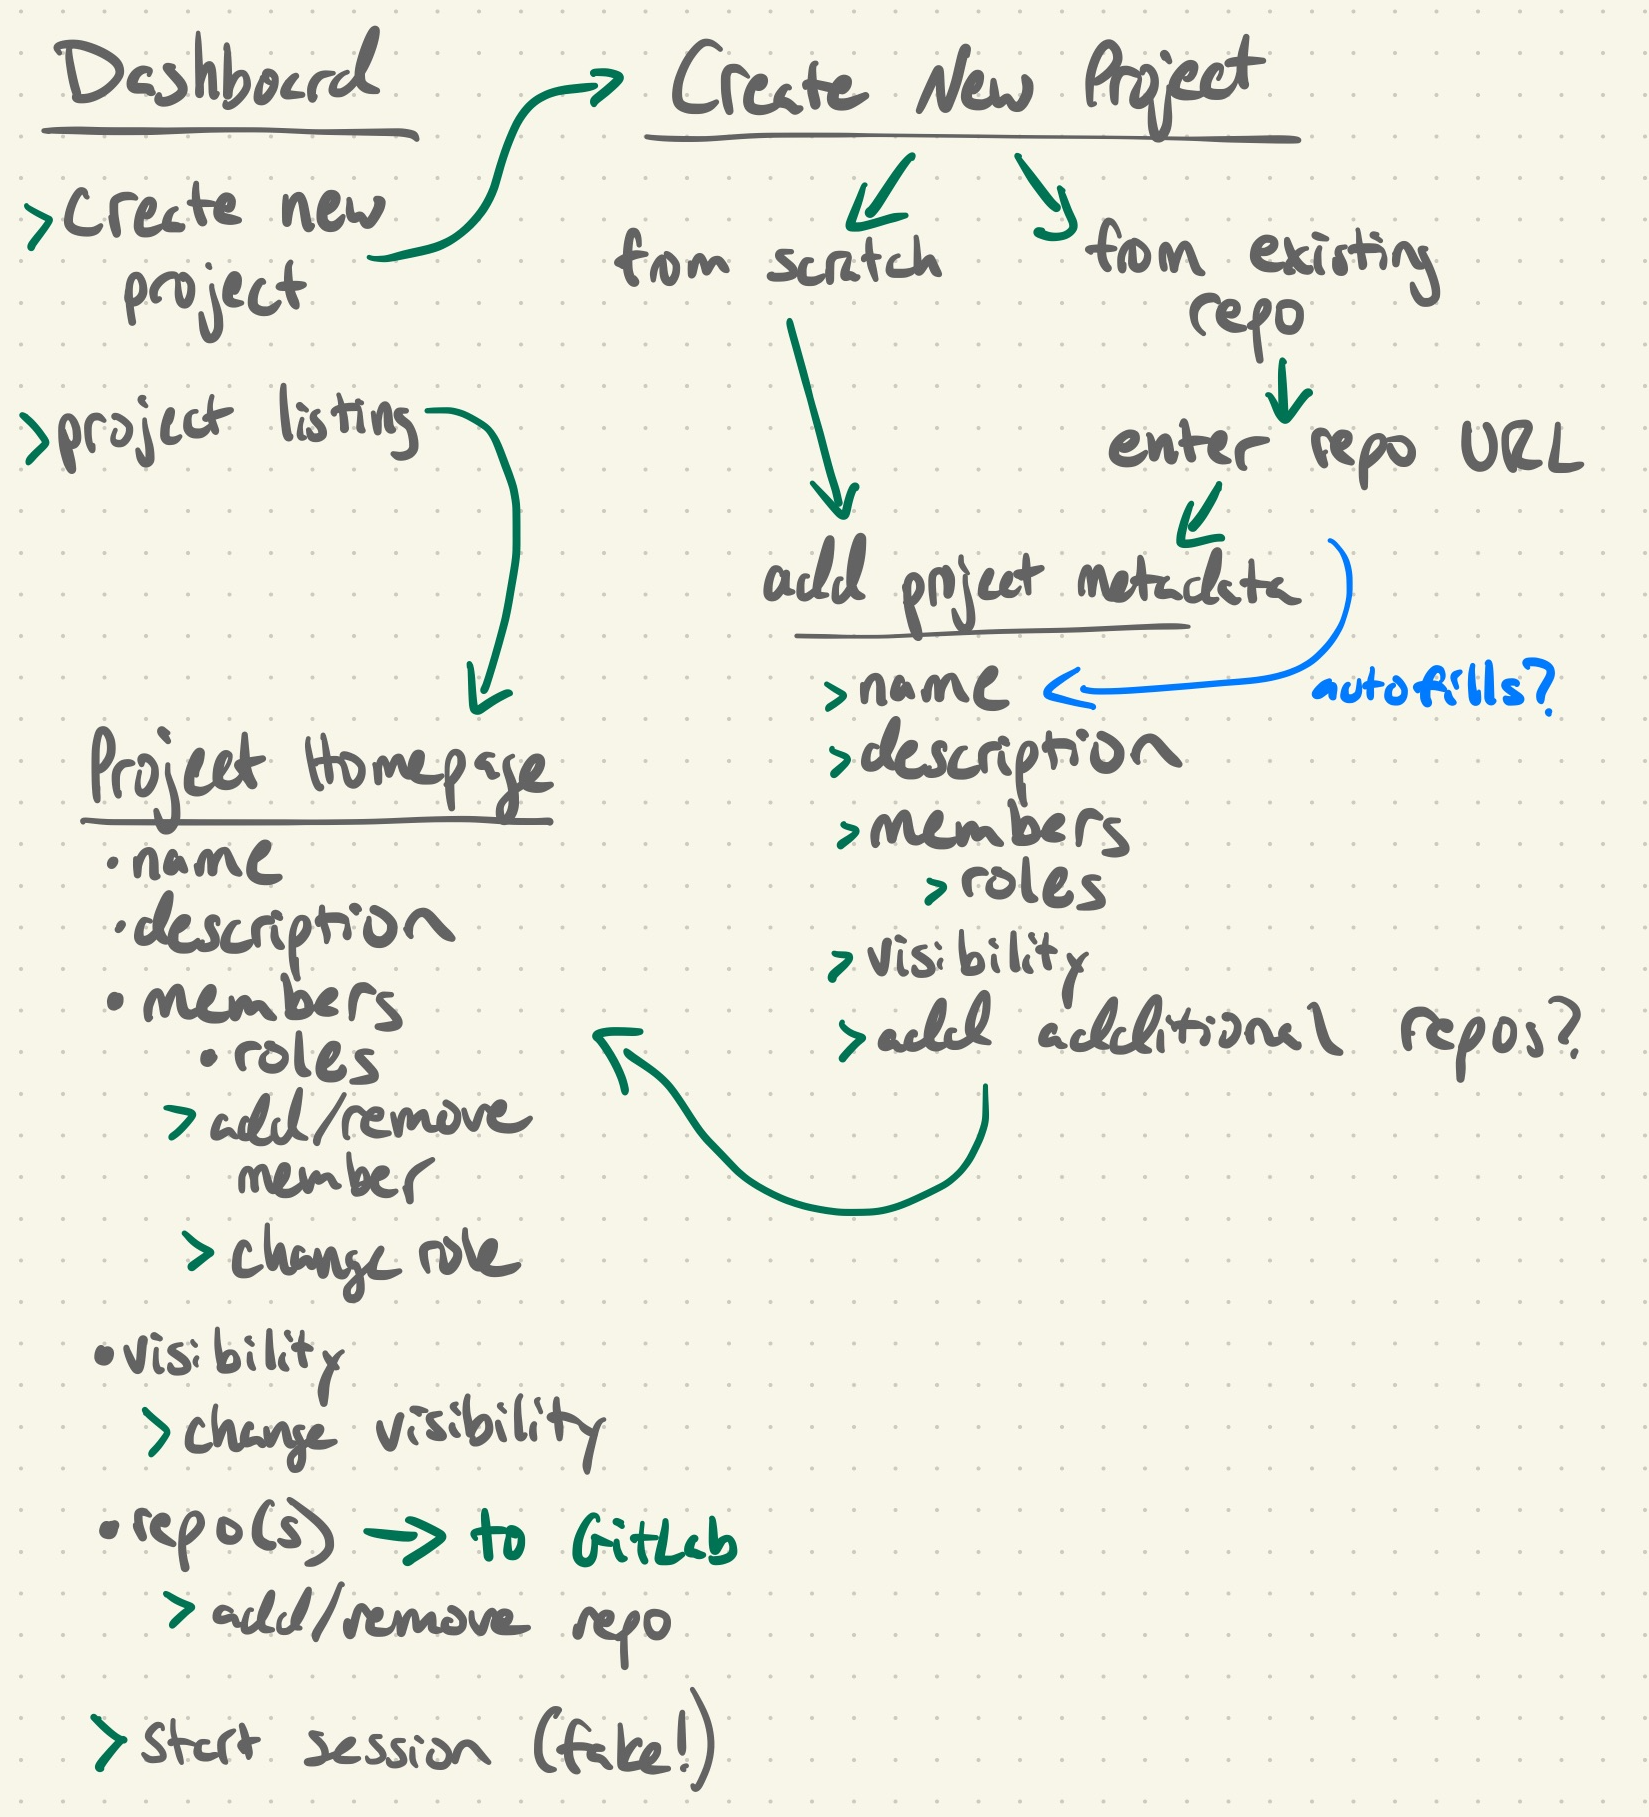 Dashboard
> Create new
project
> project listing
Create New Project
from scratch
from existing
repo
enter repo URL
add project metadata
> name
autofills?
> description
> members
> roles
> visibility
> add additional repos?
Project Homepage
• name
• description
• members
• roles
> add/remove
member
> change role
• visibility
> change visibility
• repo(s) → to GitLab
> add/remove repo
> Start session (fake!)